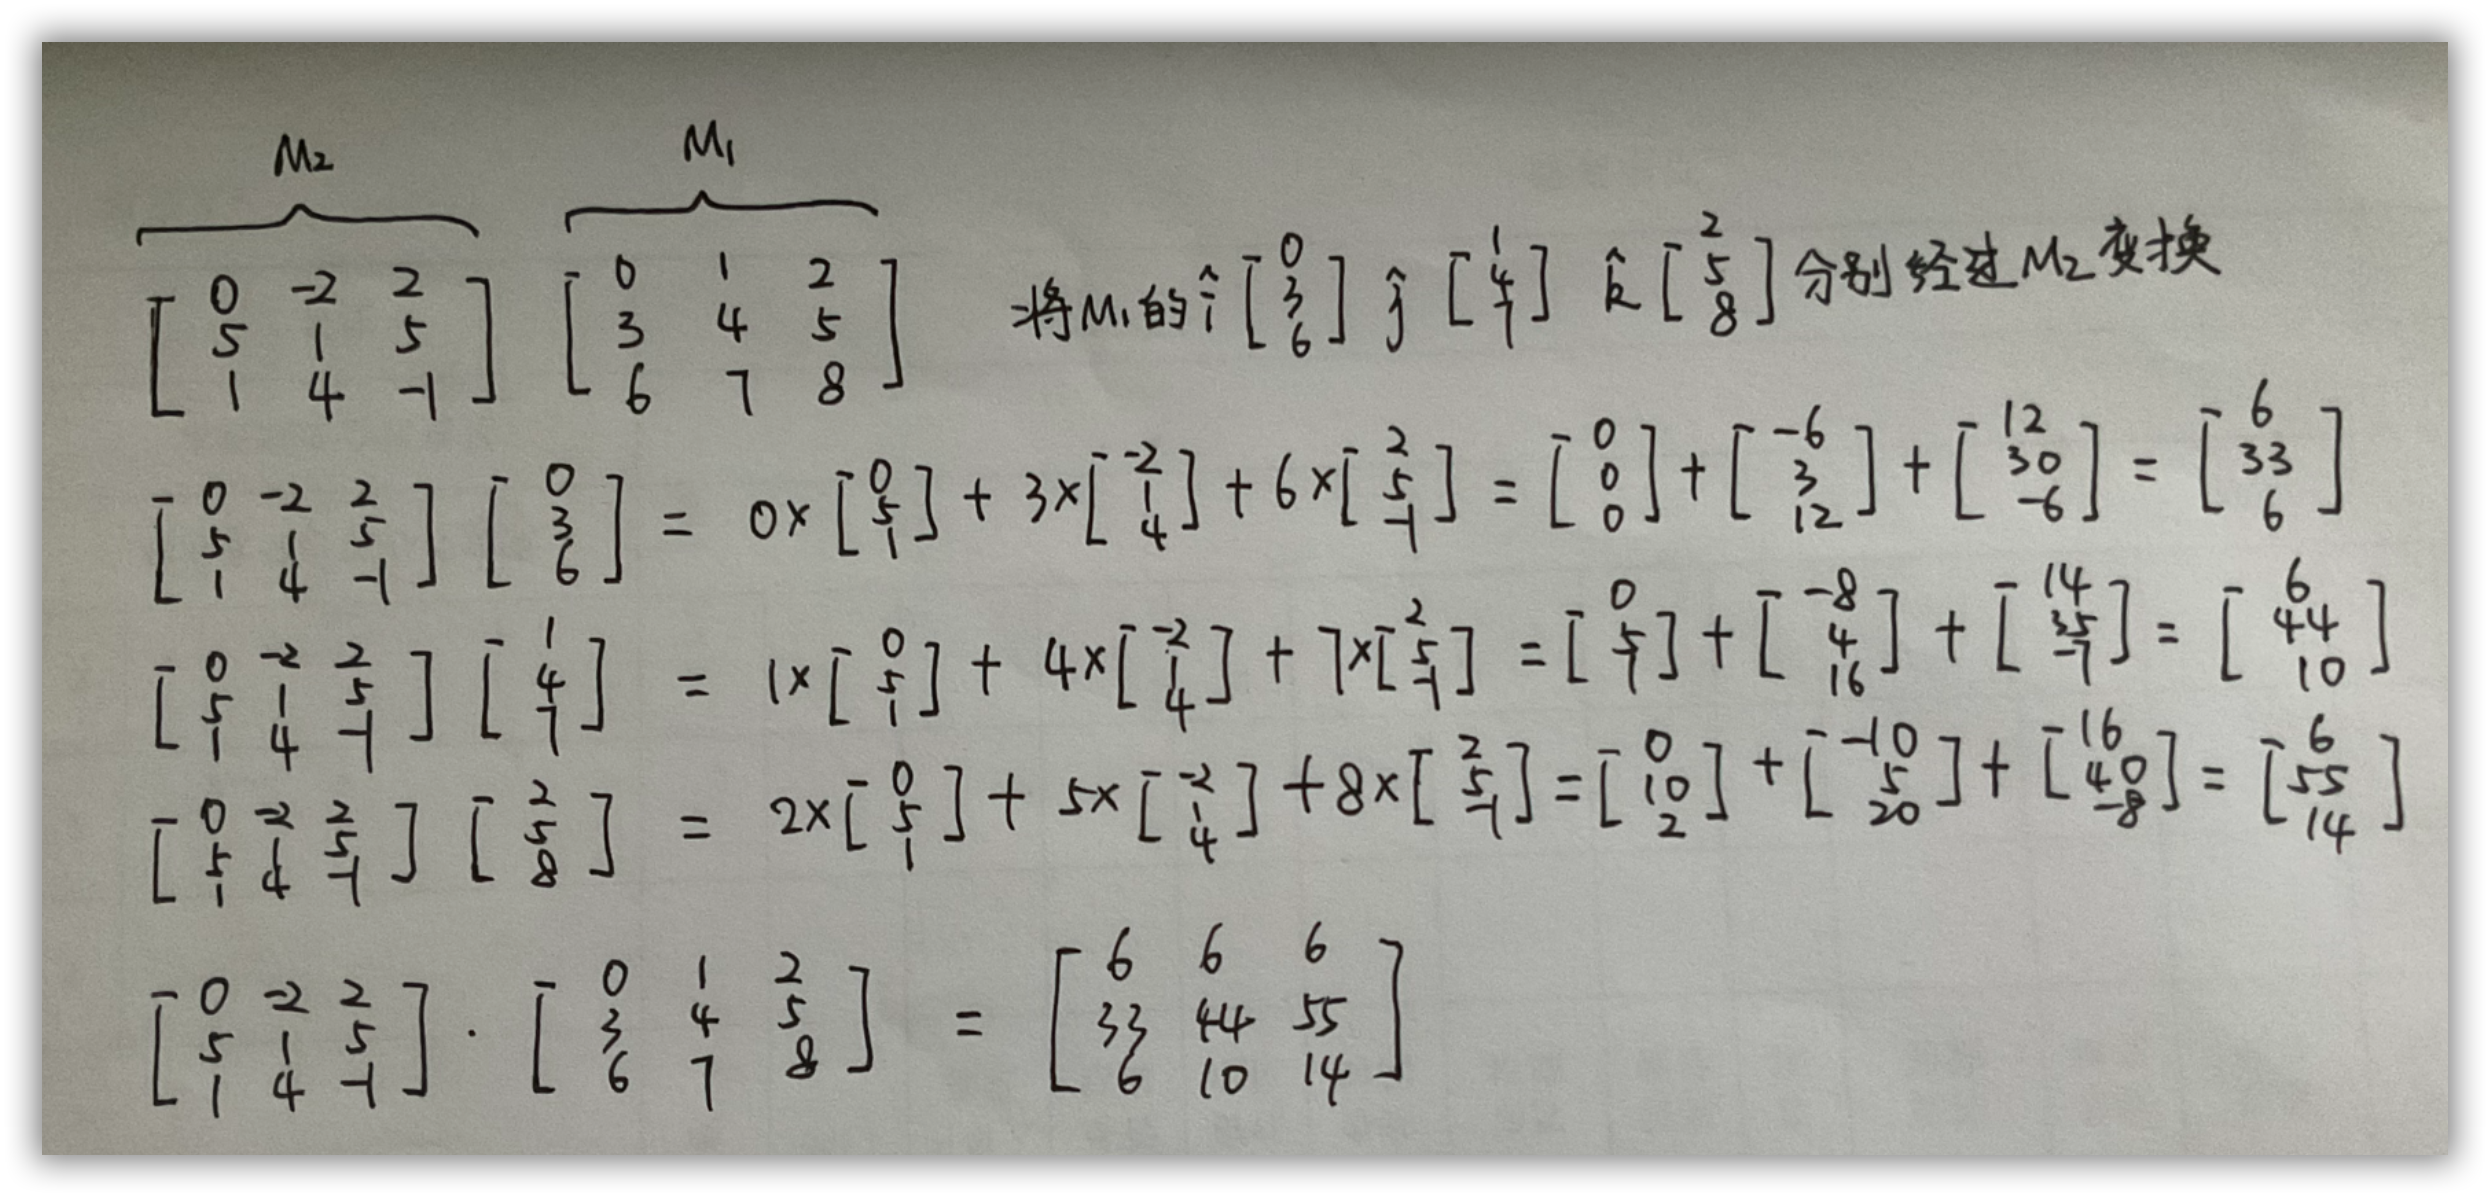 M₂ M₁
[0 -2 2; 5 1 5; 1 4 -1] [0 1 2; 3 4 5; 6 7 8] 将M₁的 î [0; 3; 6] ĵ [1; 4; 7] k̂ [2; 5; 8] 分别经过M₂变换
[0 -2 2; 5 1 5; 1 4 -1] [0; 3; 6] = 0×[0; 5; 1] + 3×[-2; 1; 4] + 6×[2; 5; -1] = [0; 0; 0] + [-6; 3; 12] + [12; 30; -6] = [6; 33; 6]
[0 -2 2; 5 1 5; 1 4 -1] [1; 4; 7] = 1×[0; 5; 1] + 4×[-2; 1; 4] + 7×[2; 5; -1] = [0; 5; 1] + [-8; 4; 16] + [14; 35; -7] = [6; 44; 10]
[0 -2 2; 5 1 5; 1 4 -1] [2; 5; 8] = 2×[0; 5; 1] + 5×[-2; 1; 4] + 8×[2; 5; -1] = [0; 10; 2] + [-10; 5; 20] + [16; 40; -8] = [6; 55; 14]
[0 -2 2; 5 1 5; 1 4 -1] · [0 1 2; 3 4 5; 6 7 8] = [6 6 6; 33 44 55; 6 10 14]